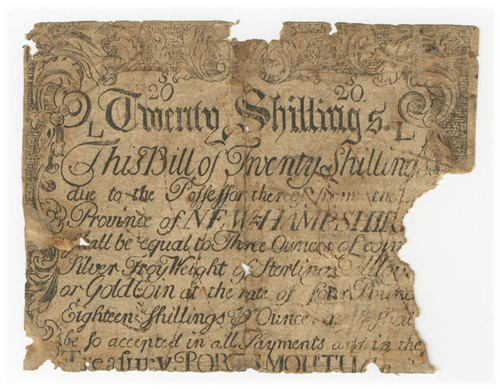 S S
20 20.
L Twenty Shillings. L
This Bill of Twenty Shilling
due to the Possessor thereof from the
Province of NEW-HAMPSHIR
shall be equal to Three Ounces of coin
Silver Troy Weight of Sterling
or Gold Coin at the rate of four Poun
Eighteen Shillings P Ounce,
be so accepted in all Payments and in the
Treasury. PORTSMOUTH